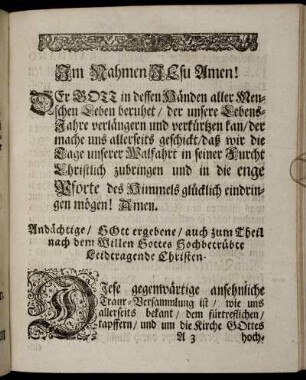 Im Nahmen JEsu Amen!
DEr GOTT in dessen Händen aller Men-
schen Leben beruhet/ der unsere Lebens-
Jahre verlängern und verkürtzen kan/ der
mache uns allerseits geschickt/ daß wir die
Tage unserer Walfahrt in seiner Furcht
Christlich zubringen und in die enge
Pforte des Himmels glücklich eindrin-
gen mögen! Amen.
Andächtige/ GOtt ergebene/ auch zum Theil
nach dem Willen Gottes Hochbetrübte
Leidtragende Christen.
DIese gegenwärtige ansehnliche
Traur-Versammlung ist/ wie uns
allerseits bekant/ dem fürtreflichen/
tapffern/ und um die Kirche GOttes
A 3 hoch-